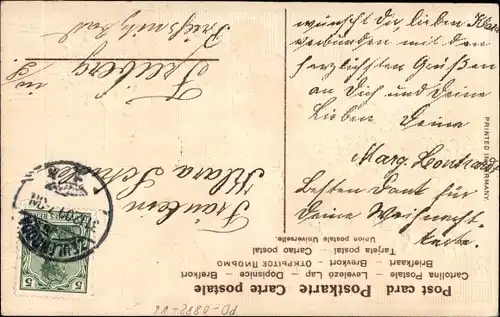 wünscht dir, lieben Klara
verbunden mit den
herzlichsten Grüßen
an Dich und Deine
Lieben Deine
Marg. Leonhardt
besten Dank für
Deine Weihnachts-
karte.
Fräulein
Klara
in Freiberg
PRINTED IN GERMANY.
Post card Postkarte Carte postale
Cartolina Postale – Levelező Lap – Dopisnice – Brefkort
Briefkaart – Brevkort – ОТКРЫТОЕ ПИСЬМО
Tarjeta postal – Cartao postal
Union postale Universelle.
5 5